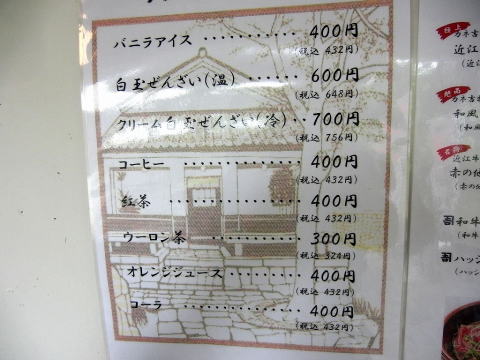 バニラアイス・・・・・・・・・400円
(税込 432円)
白玉ぜんざい(温)・・・・・・600円
(税込 648円)
クリーム白玉ぜんざい(冷)・・700円
(税込 756円)
コーヒー・・・・・・・・・・・400円
(税込 432円)
紅茶・・・・・・・・・・・・・400円
(税込 432円)
ウーロン茶・・・・・・・・・・300円
(税込 324円)
オレンジジュース・・・・・・・400円
(税込 432円)
コーラ・・・・・・・・・・・・400円
(税込 432円)
極上
近江
名物
近江牛
赤の他
(赤の他
和牛
(和牛
ハッシ
(ハッシ